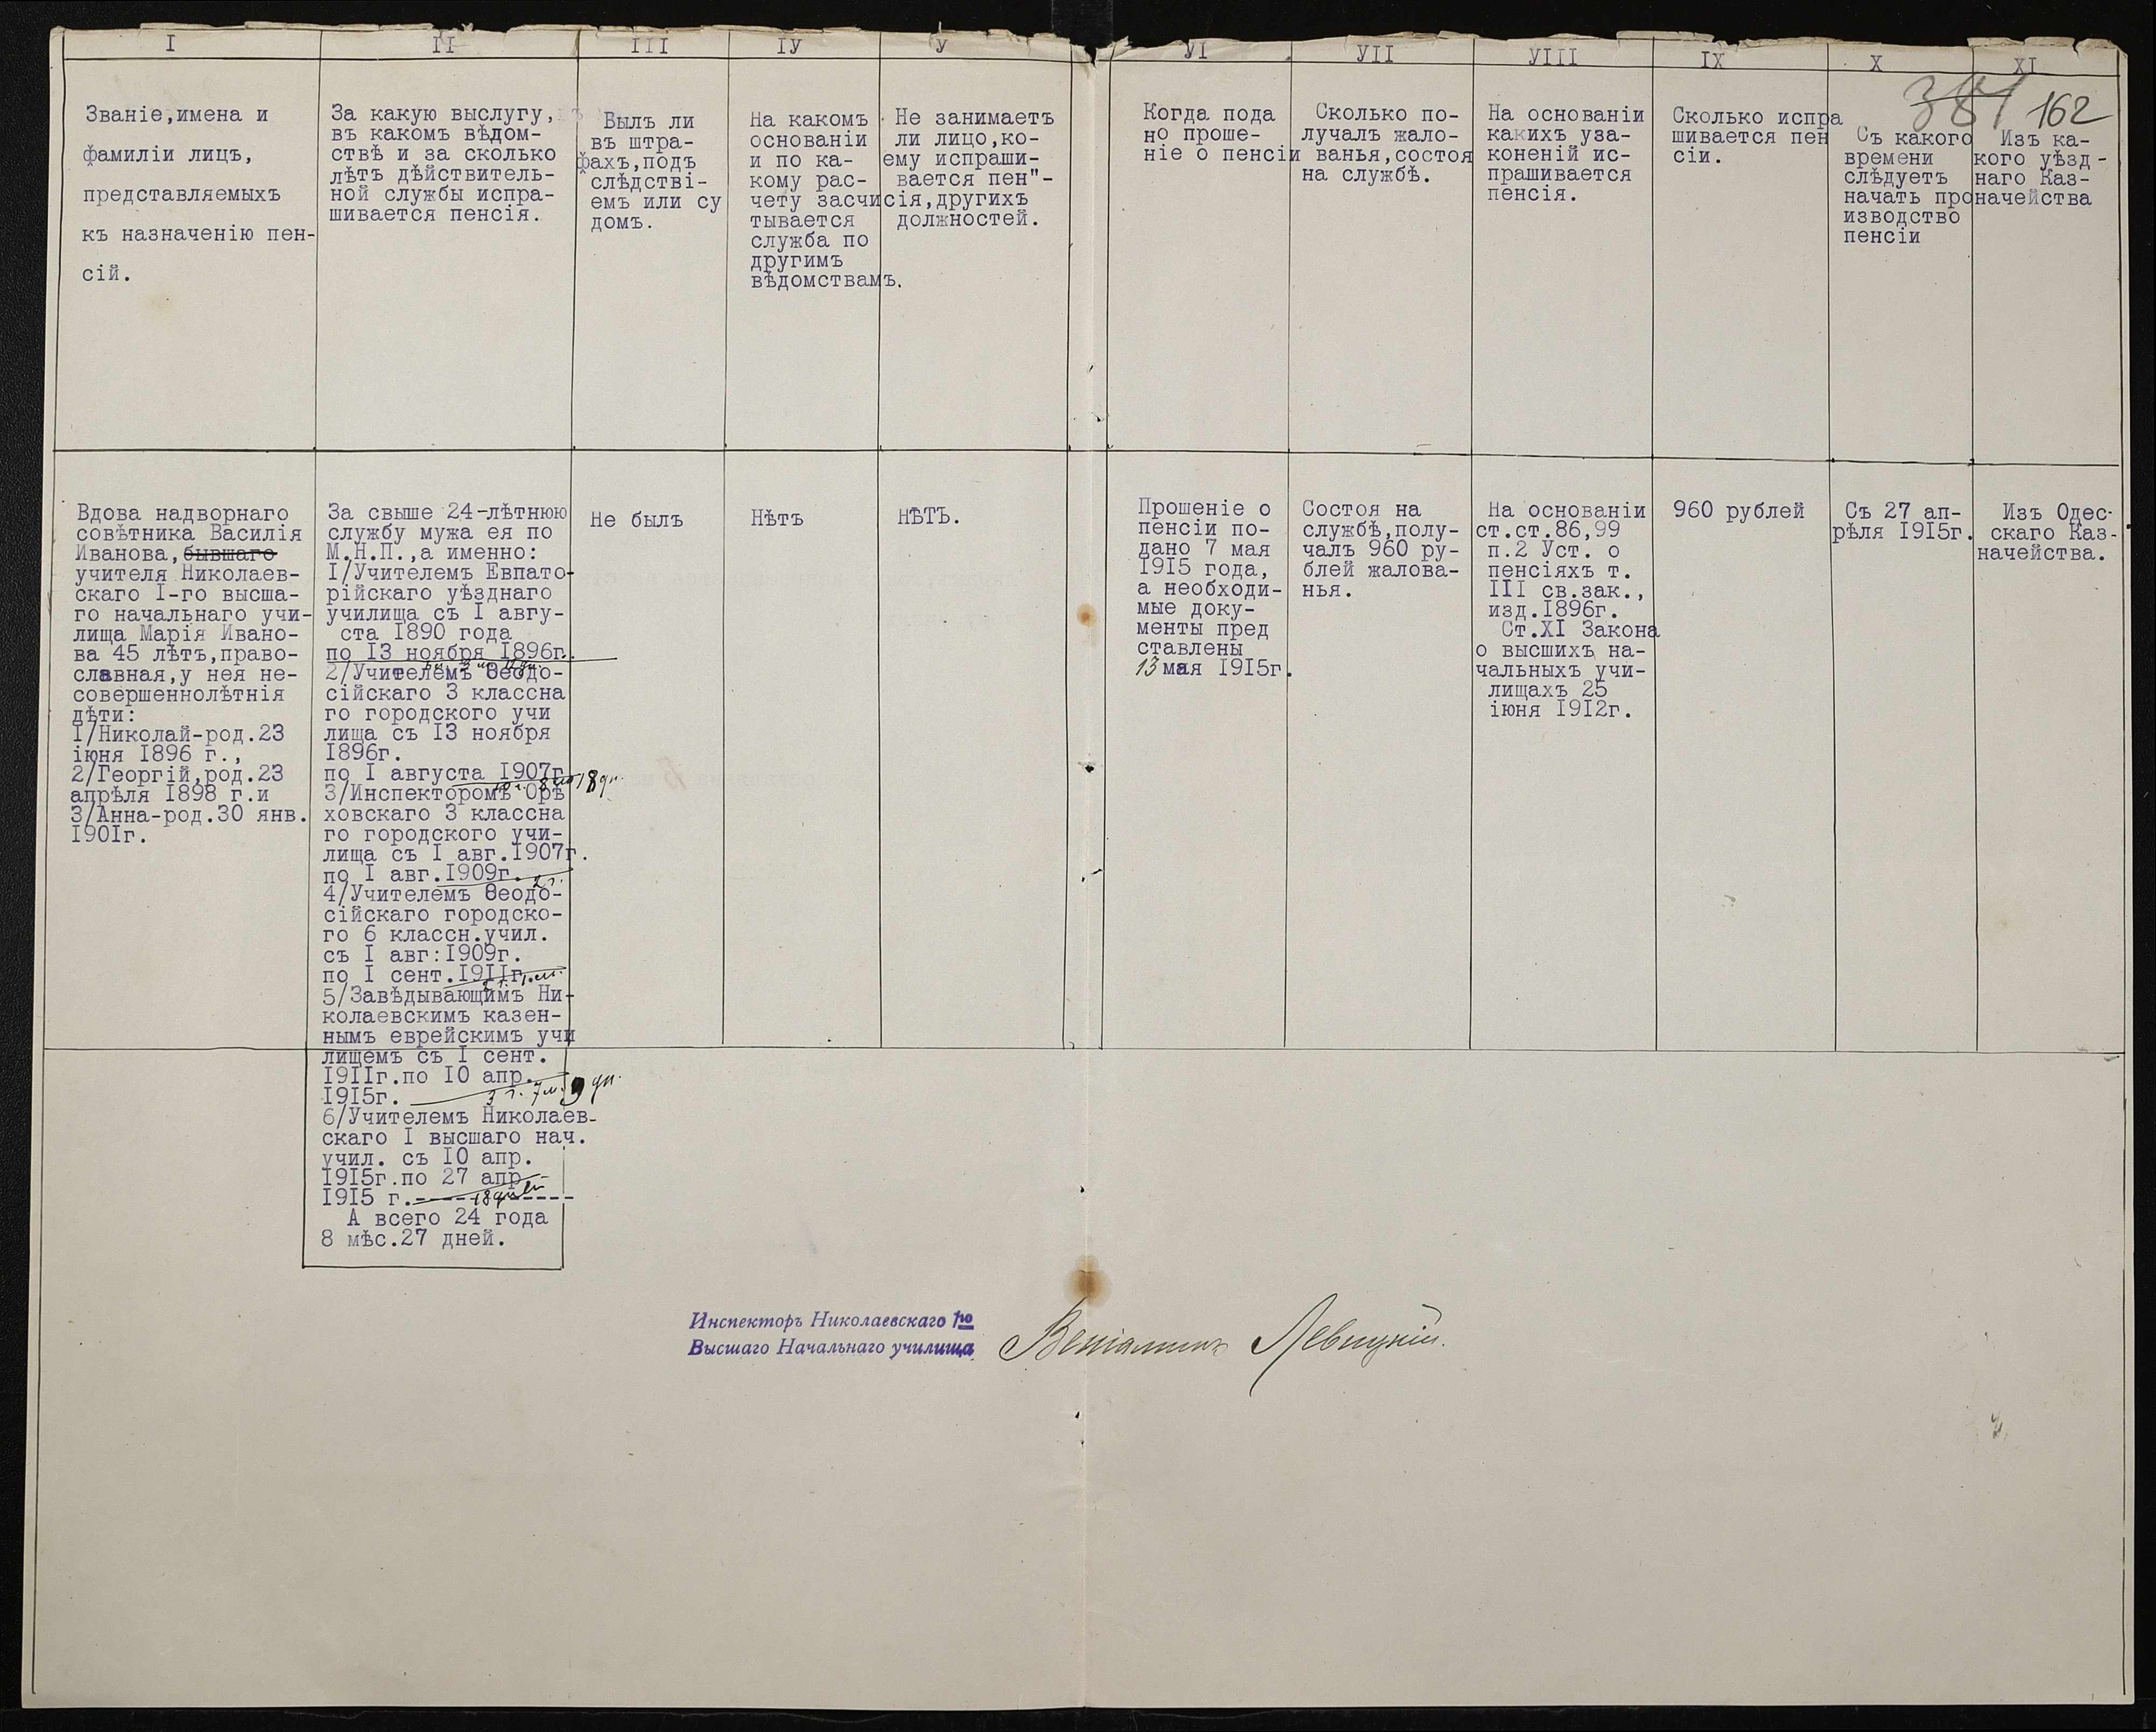 I
Званіе,имена и
фамиліи лицъ,
представляемыхъ
къ назначенію пен-
сій.
II
За какую выслугу,
въ какомъ вѣдом-
ствѣ и за сколько
лѣтъ дѣйствитель-
ной службы испра-
шивается пенсія.
III
Былъ ли
въ штра-
фахъ,подъ
слѣдстві-
емъ или су
домъ.
ІУ
На какомъ
основаніи
и по ка-
кому рас-
чету засчи
тывается
служба по
другимъ
вѣдомствамъ.
У
Не занимаетъ
ли лицо,ко-
ему испраши-
вается пен"-
сія,другихъ
должностей.
УІ
Когда пода
но проше-
ніе о пенсіи
УІІ
Сколько по-
лучалъ жало-
ванья,состоя
на службѣ.
УІІІ
На основаніи
какихъ уза-
коненій ис-
прашивается
пенсія.
IX
Сколько испра
шивается пен
сіи.
X
Съ какого
времени
слѣдуетъ
начать про
изводство
пенсіи
XI
381 162
Изъ ка-
кого уѣзд-
наго Каз-
начейства
Вдова надворнаго
совѣтника Василія
Иванова,бывшаго
учителя Николаев-
скаго I-го высша-
го начальнаго учи-
лища Марія Ивано-
ва 45 лѣтъ,право-
славная,у нея не-
совершеннолѣтнія
дѣти:
I/Николай-род.23
іюня I896 г.,
2/Георгій,род.23
апрѣля I898 г.и
3/Анна-род.30 янв.
I90Iг.
За свыше 24-лѣтнюю
службу мужа ея по
М.Н.П.,а именно:
I/Учителемъ Евпато-
рійскаго уѣзднаго
училища съ I авгу-
ста I890 года
по I3 ноября I896г.
2/Учителемъ Ѳеодо-
сійскаго 3 классна
го городского учи
лища съ I3 ноября
I896г.
по I августа I907г.
8 м. 18 дн.
3/Инспекторомъ Орѣ
ховскаго 3 классна
го городского учи-
лища съ I авг.I907г.
по I авг.I909г.
2 г.
4/Учителемъ Ѳеодо-
сійскаго городско-
го 6 классн.учил.
съ I авг:I909г.
по I сент.I9IIг.
2 г. 1 м.
5/Завѣдывающимъ Ни-
колаевскимъ казен-
нымъ еврейскимъ учи
лищемъ съ I сент.
I9IIг.по I0 апр.
I9I5г.
3 г. 7 м. 9 дн.
6/Учителемъ Николаев-
скаго I высшаго нач.
учил. съ I0 апр.
I9I5г.по 27 апр.
I9I5 г.-
18 дней
А всего 24 года
8 мѣс.27 дней.
Не былъ
Нѣтъ
НѢТЪ.
Прошеніе о
пенсіи по-
дано 7 мая
I9I5 года,
а необходи-
мые доку-
менты пред
ставлены
13 мая I9I5г.
Состоя на
службѣ,полу-
чалъ 960 ру-
блей жалова-
нья.
На основаніи
ст.ст.86,99
п.2 Уст. о
пенсіяхъ т.
III св.зак.,
изд.I896г.
Ст.XI Закона
о высшихъ на-
чальныхъ учи-
лищахъ 25
іюня I9I2г.
960 рублей
Съ 27 ап-
рѣля I9I5г.
Изъ Одес-
скаго Каз-
начейства.
Инспекторъ Николаевскаго 1го
Высшаго Начальнаго училища
Веніаминъ Левицкій.